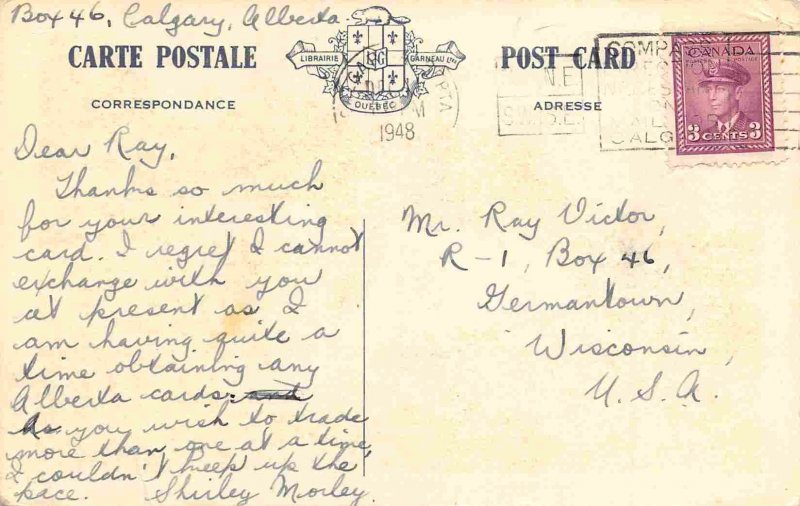 Box 46, Calgary, Alberta.
CARTE POSTALE
POST CARD
LIBRAIRIE GARNEAU Ltée
QUÉBEC
CORRESPONDANCE
ADRESSE
1948
N.E.
S.W. S.E.
CANADA
3 CENTS 3
Dear Ray,
Thanks so much
for your interesting
card. I regret I cannot
exchange with you
at present as I
am having quite a
time obtaining any
Alberta cards. and
As you wish to trade
more than one at a time,
I couldn't keep up the
pace. Shirley Morley.
Mr. Ray Victor,
R-1, Box 46,
Germantown,
Wisconsin,
U.S.A.